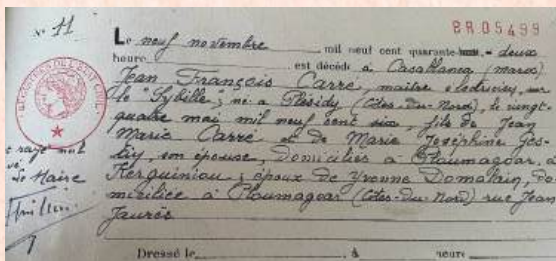 N° 11
BR05499
Le neuf novembre mil neuf cent quarante - deux
heure est décédé à Casablanca (maroc)
Jean François Carré, maître électricien, sur
le "Sybille", né à Plésidy (Côtes-du-Nord), le vingt
quatre mai mil neuf cent six, fils de Jean
Marie Carré et de Marie Joséphine
son épouse, domiciliés à Ploumagoar, à
Kerguiniou, époux de Yvonne Domalain, do
micilice à Ploumagoar (Côtes-du-Nord) rue Jean
Jaurès
rayé
Le Maire
Dressé le à heure